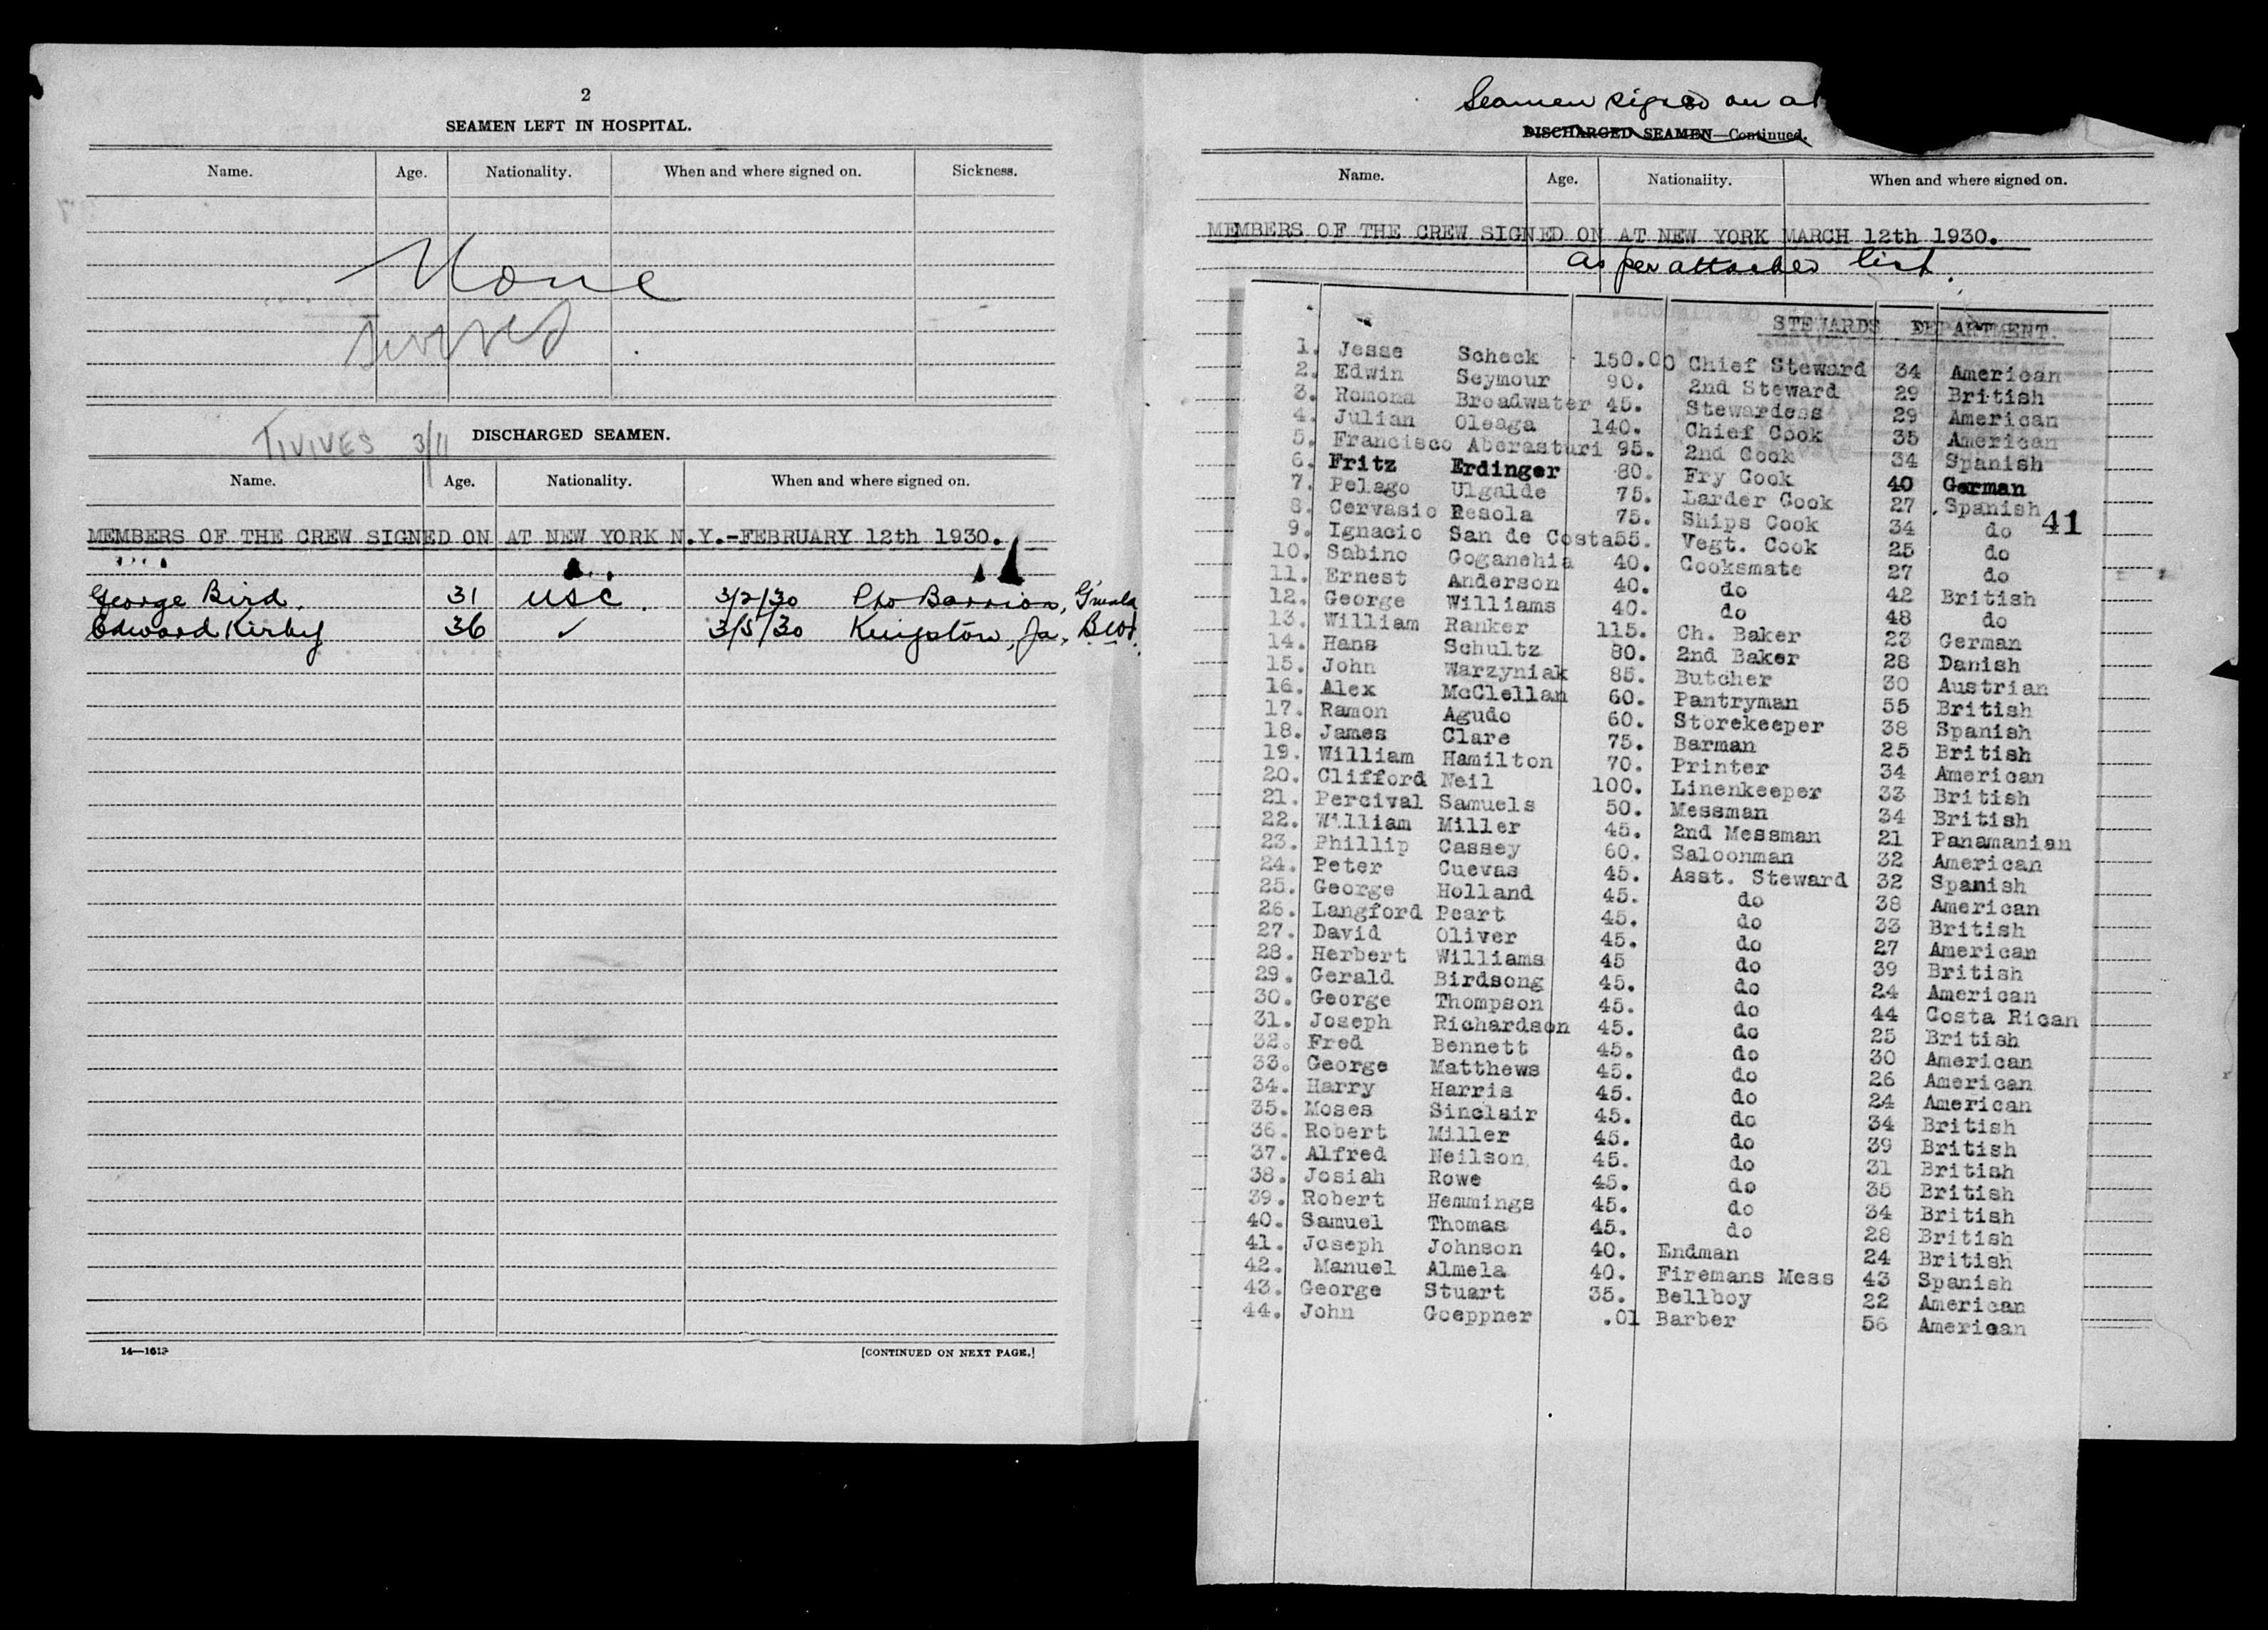 2
SEAMEN LEFT IN HOSPITAL.
Name. Age. Nationality. When and where signed on. Sickness.
None
TIVIVES 3/11 DISCHARGED SEAMEN.
Name. Age. Nationality. When and where signed on.
MEMBERS OF THE CREW SIGNED ON AT NEW YORK N.Y.-FEBRUARY 12th 1930.
George Bird. 31 USC. 3/2/30 Pto Barrios,
Edward Kirby 36 ✓ 3/5/30 Kingston, Ja. BWI.
14—1613
[CONTINUED ON NEXT PAGE.]
Seamen signed on at
DISCHARGED SEAMEN—Continued.
Name. Age. Nationality. When and where signed on.
MEMBERS OF THE CREW SIGNED ON AT NEW YORK MARCH 12th 1930.
as per attached list.
STEWARDS DEPARTMENT.
1. Jesse Scheck 150.00 Chief Steward 34 American
2. Edwin Seymour 90. 2nd Steward 29 British
3. Romona Broadwater 45. Stewardess 29 American
4. Julian Oleaga 140. Chief Cook 35 American
5. Francisco Aberasturi 95. 2nd Cook 34 Spanish
6. Fritz Erdinger 80. Fry Cook 40 German
7. Pelago Ulgalde 75. Larder Cook 27 Spanish
8. Cervasio Resola 75. Ships Cook 34 do
41
9. Ignacio San de Costa 55. Vegt. Cook 25 do
10. Sabino Goganehia 40. Cooksmate 27 do
11. Ernest Anderson 40. do 42 British
12. George Williams 40. do 48 do
13. William Ranker 115. Ch. Baker 23 German
14. Hans Schultz 80. 2nd Baker 28 Danish
15. John Warzyniak 85. Butcher 30 Austrian
16. Alex McClellan 60. Pantryman 55 British
17. Ramon Agudo 60. Storekeeper 38 Spanish
18. James Clare 75. Barman 25 British
19. William Hamilton 70. Printer 34 American
20. Clifford Neil 100. Linenkeeper 33 British
21. Percival Samuels 50. Messman 34 British
22. William Miller 45. 2nd Messman 21 Panamanian
23. Phillip Cassey 60. Saloonman 32 American
24. Peter Cuevas 45. Asst. Steward 32 Spanish
25. George Holland 45. do 38 American
26. Langford Peart 45. do 33 British
27. David Oliver 45. do 27 American
28. Herbert Williams 45 do 39 British
29. Gerald Birdsong 45. do 24 American
30. George Thompson 45. do 44 Costa Rican
31. Joseph Richardson 45. do 25 British
32. Fred Bennett 45. do 30 American
33. George Matthews 45. do 26 American
34. Harry Harris 45. do 24 American
35. Moses Sinclair 45. do 34 British
36. Robert Miller 45. do 39 British
37. Alfred Neilson 45. do 31 British
38. Josiah Rowe 45. do 35 British
39. Robert Hemmings 45. do 34 British
40. Samuel Thomas 45. do 28 British
41. Joseph Johnson 40. Endman 24 British
42. Manuel Almela 40. Firemans Mess 43 Spanish
43. George Stuart 35. Bellboy 22 American
44. John Goeppner .01 Barber 56 American